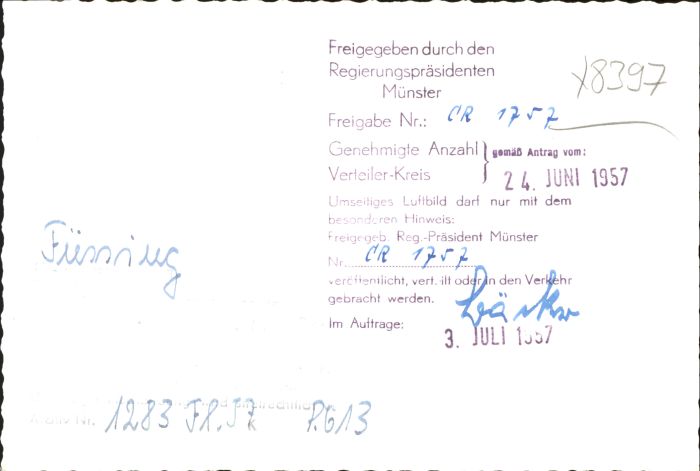 Freigegeben durch den
Regierungspräsidenten
Münster
x8397
Freigabe Nr.: CR 1757
Genehmigte Anzahl } gemäß Antrag vom:
Verteiler-Kreis 24. JUNI 1957
Umseitiges Luftbild darf nur mit dem
besonderen Hinweis:
Freigegeb. Reg.-Präsident Münster
Nr. CR 1757
veröffentlicht, verteilt oder in den Verkehr
gebracht werden.
Im Auftrage:
3. JULI 1957
Füssing
Nr. 1283 P.613